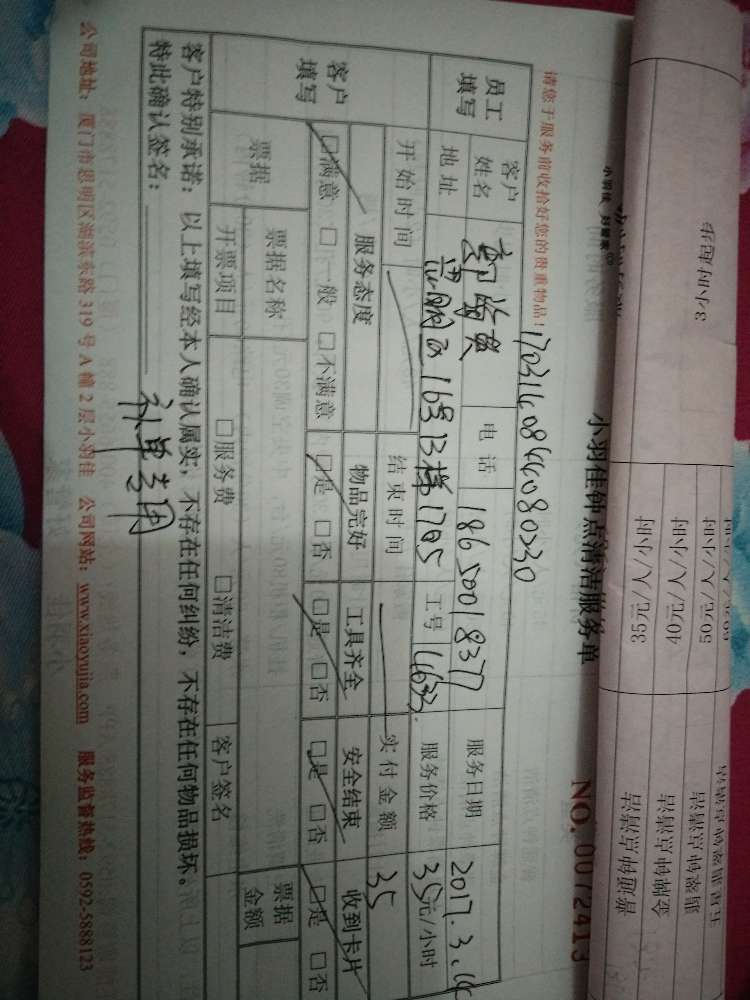 3小时起步
50元/人/小时
40元/人/小时
35元/人/小时
金牌钟点清洁
普通钟点清洁
小羽佳钟点清洁服务单
NO. 0072413
请您于服务前收拾好您的贵重物品！
1703140844080230
员工填写
客户姓名
电话 18650018377
服务日期 2017.3.14
地址 思明区 16号B梯1705
工号
服务价格 35元/小时
开始时间
结束时间
实付金额 35
客户填写
服务态度 物品完好 工具齐全 安全结束 收到卡片
☐满意 ☐一般 ☐不满意 ☐是 ☐否 ☐是 ☐否 ☐是 ☐否 ☐是 ☐否
票据
票据名称
票据金额
开票项目 ☐服务费 ☐清洁费 客户签名
客户特别承诺：以上填写经本人确认属实，不存在任何纠纷，不存在任何物品损坏。
特此确认签名： 补单专用
公司地址：厦门市思明区湖滨东路 319 号 A 幢 2 层小羽佳 公司网站：www.xiaoyujia.com 服务监督热线：0592-5888123